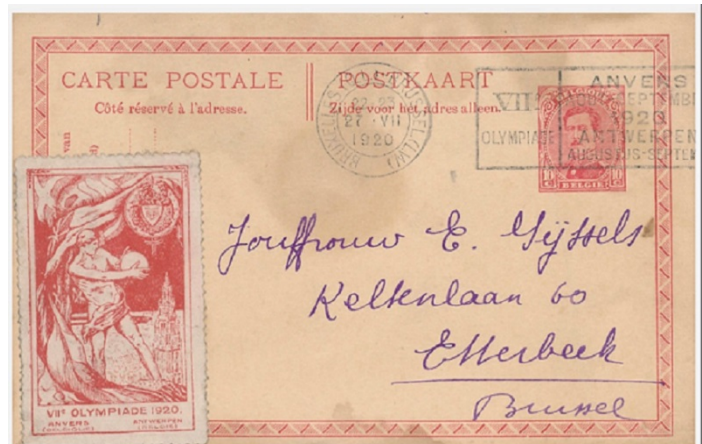 CARTE POSTALE
Côté réservé à l'adresse.
POSTKAART
Zijde voor het adres alleen.
van
27 · VII
1920
VIIe
OLYMPIADE
ANVERS
1920
ANTWERPEN
BELGIË
Jouffrouw E. Gijssels
Keltenlaan 60
Etterbeek
Brussel
VIIE OLYMPIADE 1920.
ANVERS
ANTWERPEN